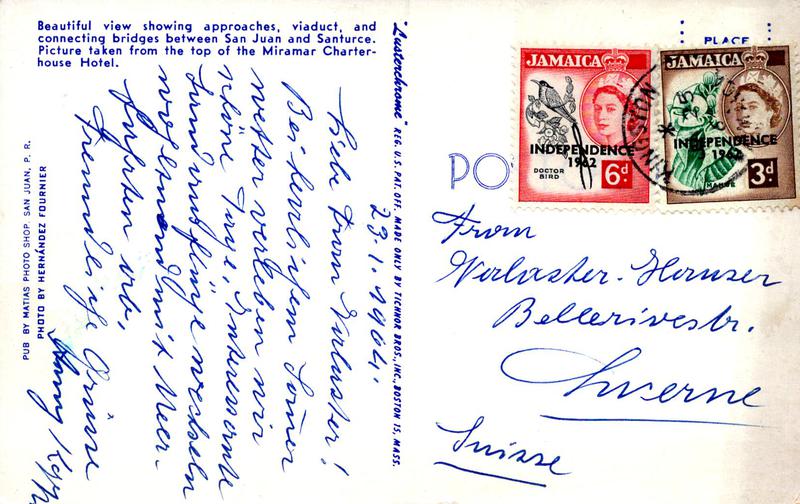 Beautiful view showing approaches, viaduct, and
connecting bridges between San Juan and Santurce.
Picture taken from the top of the Miramar Charter-
house Hotel.
PUB BY MATIAS PHOTO SHOP, SAN JUAN, P. R.
PHOTO BY HERNÁNDEZ FOURNIER
23.1.1964.
Liebe Frau Valaster!
Bei herrlichem Sommer
wetter verleben wir
schöne Tage. Interessante
Landausflüge wechseln
mit Meer-
fahrten ab.
Freundliche Grüsse
"Lusterchrome" REG. U.S. PAT. OFF. MADE ONLY BY TICHNOR BROS., INC., BOSTON 15, MASS.
PLACE
PO
JAMAICA
INDEPENDENCE
1962
DOCTOR
BIRD
6d.
JAMAICA
INDEPENDENCE
1962
MAHOE
3d.
KINGSTON
From
Valaster-Hauser
Bellerivestr.
Luzerne
Suisse